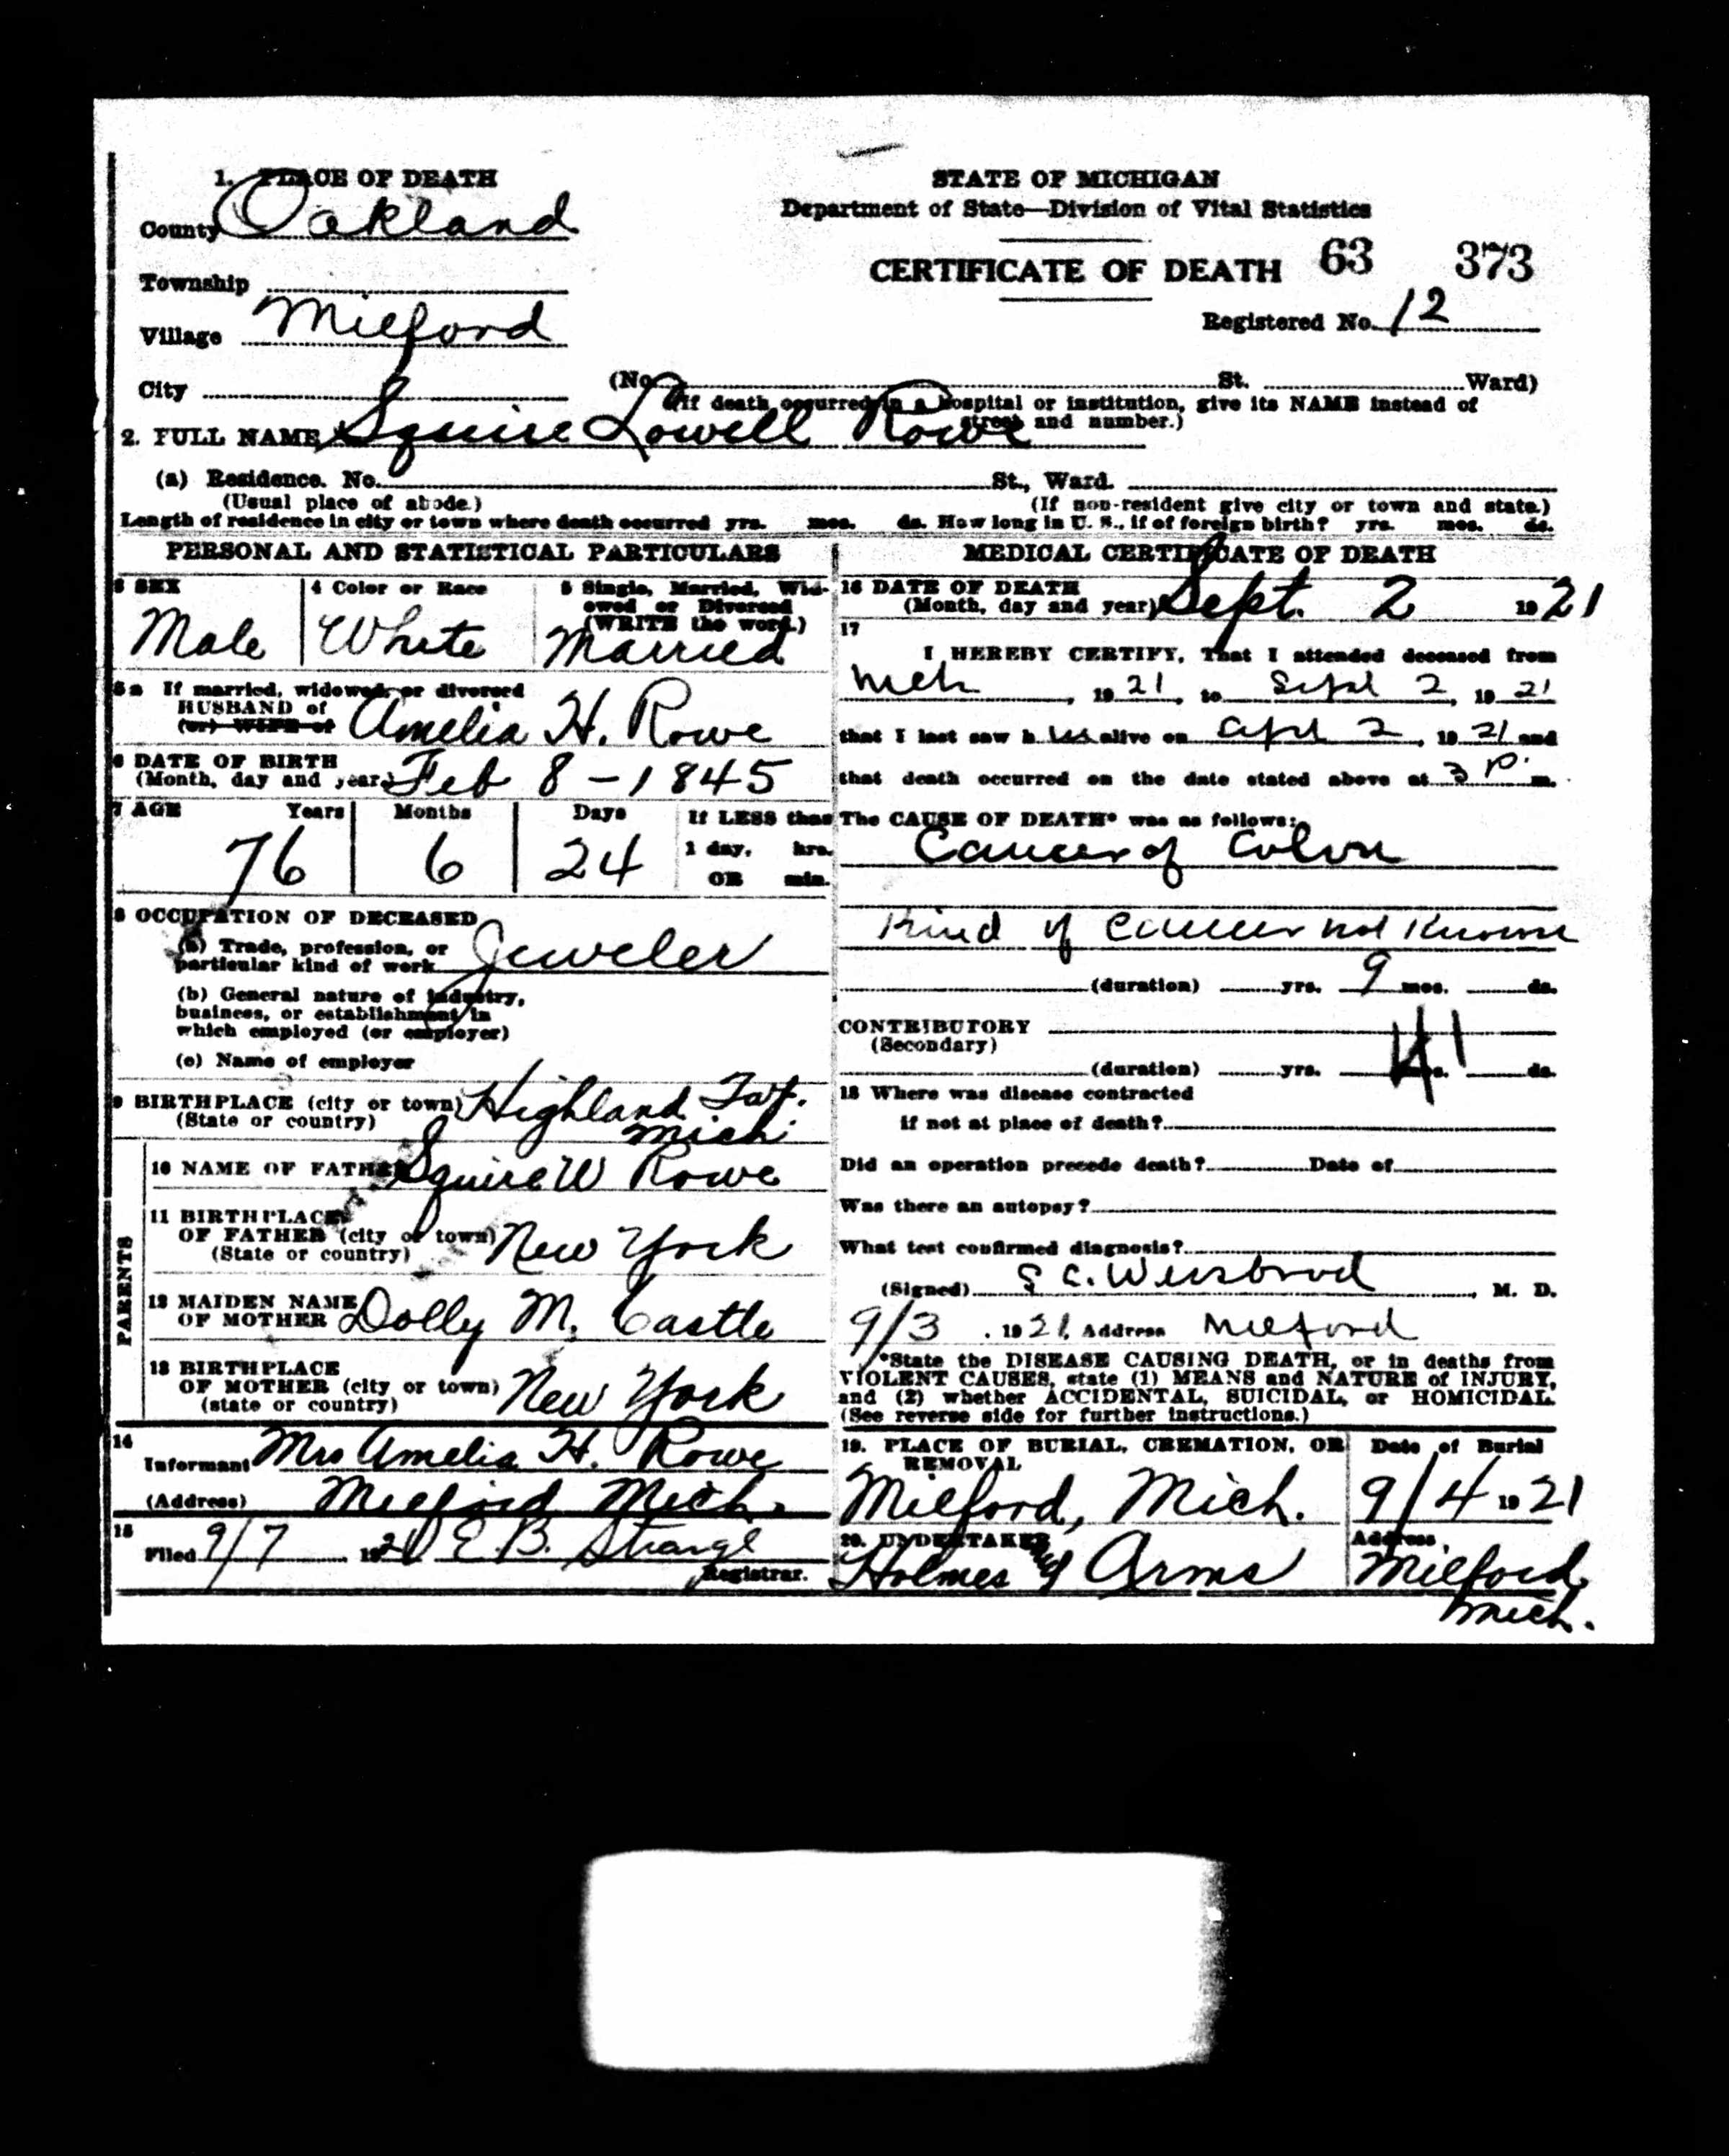 1. PLACE OF DEATH
County Oakland
Township
Village Milford
City
STATE OF MICHIGAN
Department of State—Division of Vital Statistics
CERTIFICATE OF DEATH 63 373
Registered No. 12
(No. St. Ward)
(If death occurred in a hospital or institution, give its NAME instead of
street and number.)
2. FULL NAME Squire Lowell Rowe
(a) Residence. No. St., Ward.
(Usual place of abode.) (If non-resident give city or town and state.)
Length of residence in city or town where death occurred yrs. mos. ds. How long in U. S., if of foreign birth? yrs. mos. ds.
PERSONAL AND STATISTICAL PARTICULARS
3 SEX
Male
4 Color or Race
White
5 Single, Married, Wid-
owed or Divorced
(WRITE the word.)
Married
5a If married, widowed, or divorced
HUSBAND of
(or) WIFE of Amelia H. Rowe
6 DATE OF BIRTH
(Month, day and year) Feb 8 - 1845
7 AGE Years Months Days If LESS than
1 day, hrs.
OR min.
76 6 24
8 OCCUPATION OF DECEASED
(a) Trade, profession, or
particular kind of work Jeweler
(b) General nature of industry,
business, or establishment in
which employed (or employer)
(c) Name of employer
9 BIRTHPLACE (city or town) Highland Twp.
(State or country) Mich.
PARENTS
10 NAME OF FATHER Squire W Rowe
11 BIRTHPLACE
OF FATHER (city or town) New York
(State or country)
12 MAIDEN NAME
OF MOTHER Dolly M. Castle
13 BIRTHPLACE
OF MOTHER (city or town) New York
(state or country)
14
Informant Mrs Amelia H. Rowe
(Address) Milford Mich.
15
Filed 9/7 1921 E. B. Strange
Registrar.
MEDICAL CERTIFICATE OF DEATH
16 DATE OF DEATH
(Month, day and year) Sept. 2 1921
17
I HEREBY CERTIFY, That I attended deceased from
Mch, 1921, to Sept 2, 1921
that I last saw h alive on Apl 2, 1921 and
that death occurred on the date stated above at 3 P. m.
The CAUSE OF DEATH* was as follows:
Cancer of Colon
Kind of Cancer not Known
(duration) yrs. 9 mos. ds.
CONTRIBUTORY
(Secondary)
(duration) yrs. mos. ds.
41
18 Where was disease contracted
if not at place of death?
Did an operation precede death? Date of
Was there an autopsy?
What test confirmed diagnosis?
(Signed) S C. Weisbrod, M. D.
9/3, 1921, Address Milford
*State the DISEASE CAUSING DEATH, or in deaths from
VIOLENT CAUSES, state (1) MEANS and NATURE of INJURY,
and (2) whether ACCIDENTAL, SUICIDAL, or HOMICIDAL.
(See reverse side for further instructions.)
19. PLACE OF BURIAL, CREMATION, OR
REMOVAL
Milford, Mich.
Date of Burial
9/4 1921
20. UNDERTAKER
Holmes & Arms
Address
Milford
Mich.